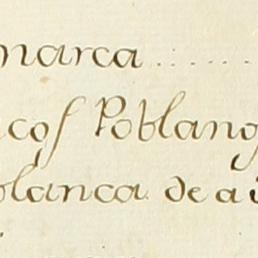 marca ........
cos Poblano
blanca de a